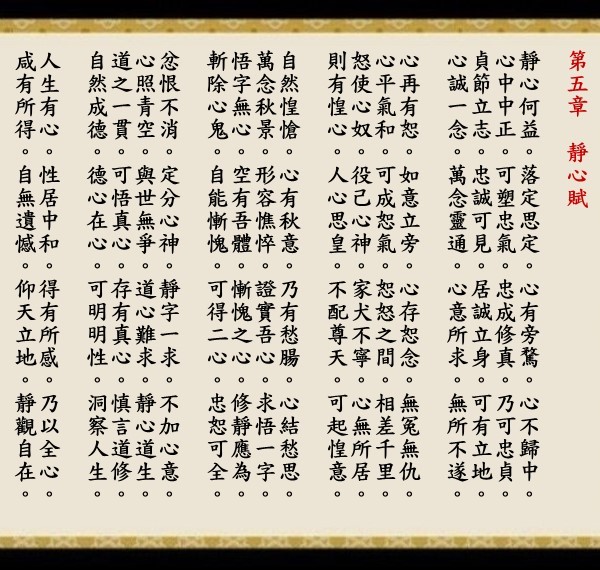 第五章　靜心賦
靜心何益。落定思定。心有旁騖。心不歸中。
心中中正。可塑忠氣。忠成修真。乃可忠貞。
貞節立志。忠誠可見。居誠立身。可有立地。
心誠一念。萬念靈通。心意所求。無所不遂。
心再有恕。如意立旁。心存恕念。無冤無仇。
心平氣和。可成恕氣。恕怒之間。相差千里。
怒使心奴。役己心神。家犬不寧。心無所居。
則有惶心。人心思皇。不配尊天。可起惶意。
自然惶愴。心有秋意。乃有愁腸。心結愁思。
萬念秋景。形容憔悴。證實吾心。求悟一字。
悟字無心。空有吾體。慚愧之心。修靜應為。
斬除心鬼。自能慚愧。可得二心。忠恕可全。
忿恨不消。定分心神。靜字一求。不加心意。
心照青空。與世無爭。道心難求。靜心道生。
道之一貫。可悟真心。存有真心。慎言道修。
自然成德。德心在心。可明明性。洞察人生。
人生有心。性居中和。得有所感。乃以全心。
咸有所得。自無遺憾。仰天立地。靜觀自在。